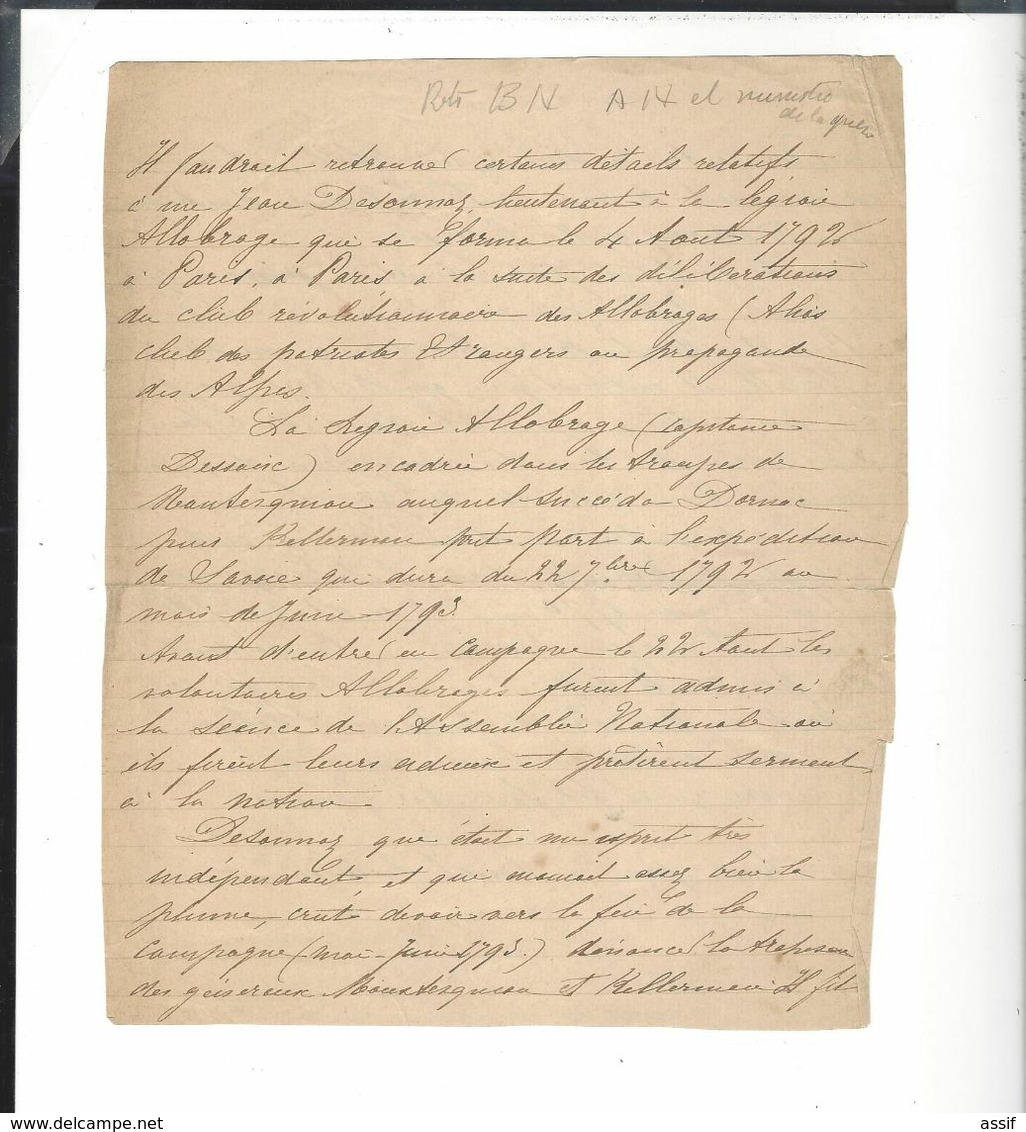 BN A N et ministre
de la guerre
Il faudrait retrouver certains détails relatifs
à un Jean Desonnaz, lieutenant à la légion
Allobroge qui se forma le 4 Aout 1792
à Paris, à Paris, à la suite des délibérations
du club révolutionnaire des Allobroges (Alias
club des patriotes Etrangers ou propagande
des Alpes.
La Légion Allobroge (capitaine
Dessaix) encadrée dans les troupes de
Montesquiou auquel succéda Dornac
puis Kellerman prit part à l'expédition
de Savoie qui dura du 22 7bre 1792 au
mois de Juin 1793
Avant d'entrer en campagne le 22 Aout les
volontaires Allobroges furent admis à
la séance de l'Assemblée Nationale où
ils firent leurs adieux et prêtèrent serment
à la nation
Desonnaz qui était un esprit très
indépendant, et qui maniait assez bien la
plume, crut devoir vers la fin de la
campagne (mai-Juin 1793.) dénoncer la trahison
des généraux Montesquiou et Kellerman Il fit
assif